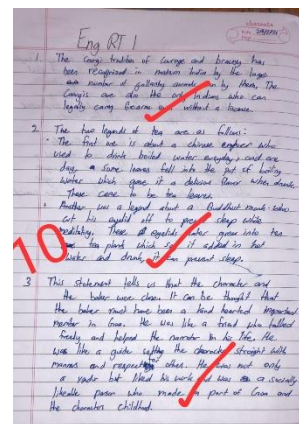 Eng RT 1
1. The Coorgi tradition of courage and bravery has
been recognized in modern India by the large
number of gallantry awards won by them. The
Coorgis are also the only Indians who can
legally carry firearms without a licence.
2 The two legends of tea are as follows:
The first one is about a chinese emperor who
used to drink boiled water everyday and one
day, a some leaves fell into the pot of boiling
water which gave it a delicious flavor when drank.
These came to be tea leaves.
Another was a legend about a Buddhist monk who
cut his eyelid off to prevent sleep while
meditating. These eyelids later grew into ten
tea plants which if added in hot
water and drunk, it can prevent sleep.
10
3 This statement tells us that the character and
the baker were close. It can be thought that
the baker must have been a kind hearted important
mentor in Goa. He was like a friend who talked
freely and helped the narrator in his life. He
was like a guide the character straight with
manners and respect other. He was not only
a but liked his work and was a socially
likeable person who made a part of Goan and
the character childhood.